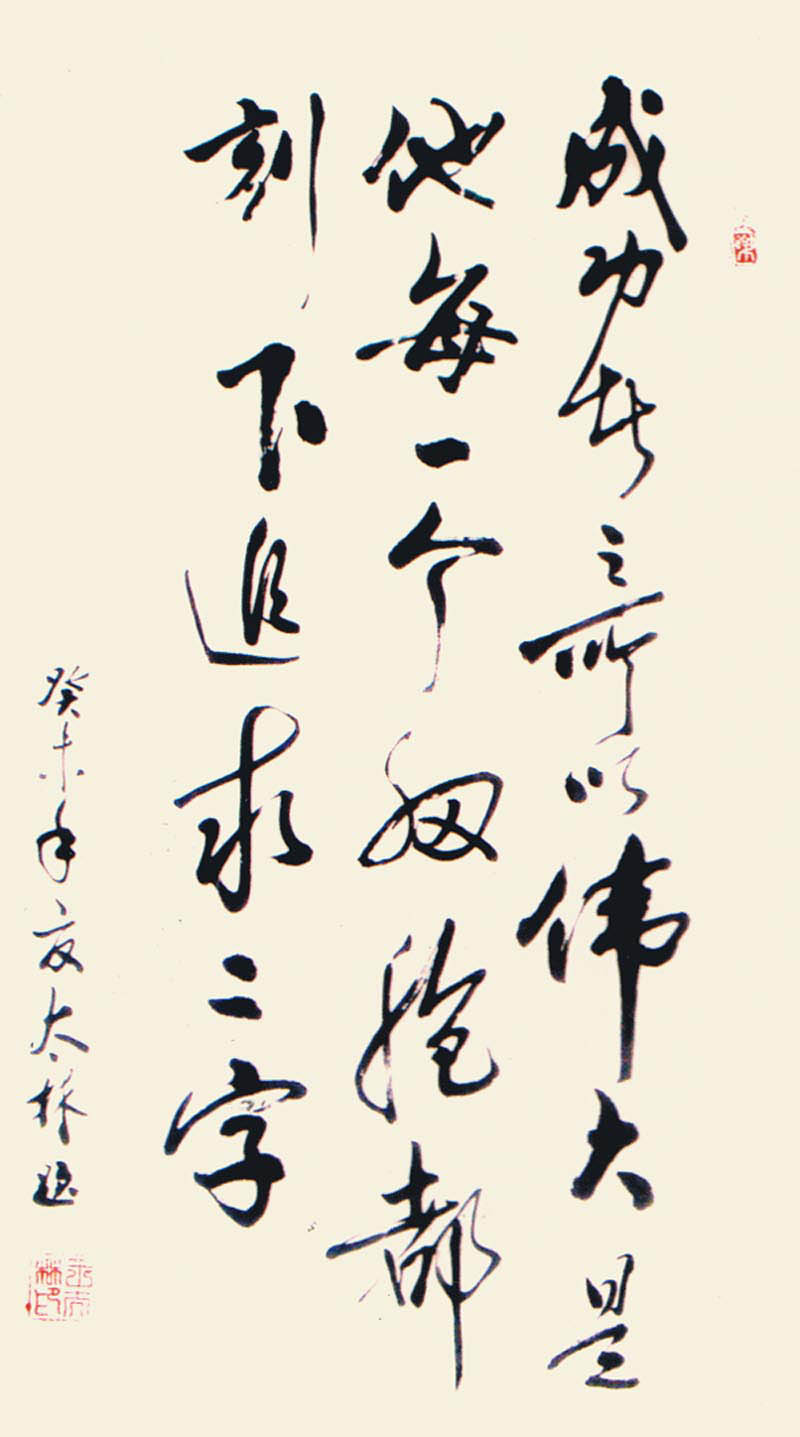 成功者之所以伟大是
他每一个细胞都
刻下追求二字
癸未年夏太林题